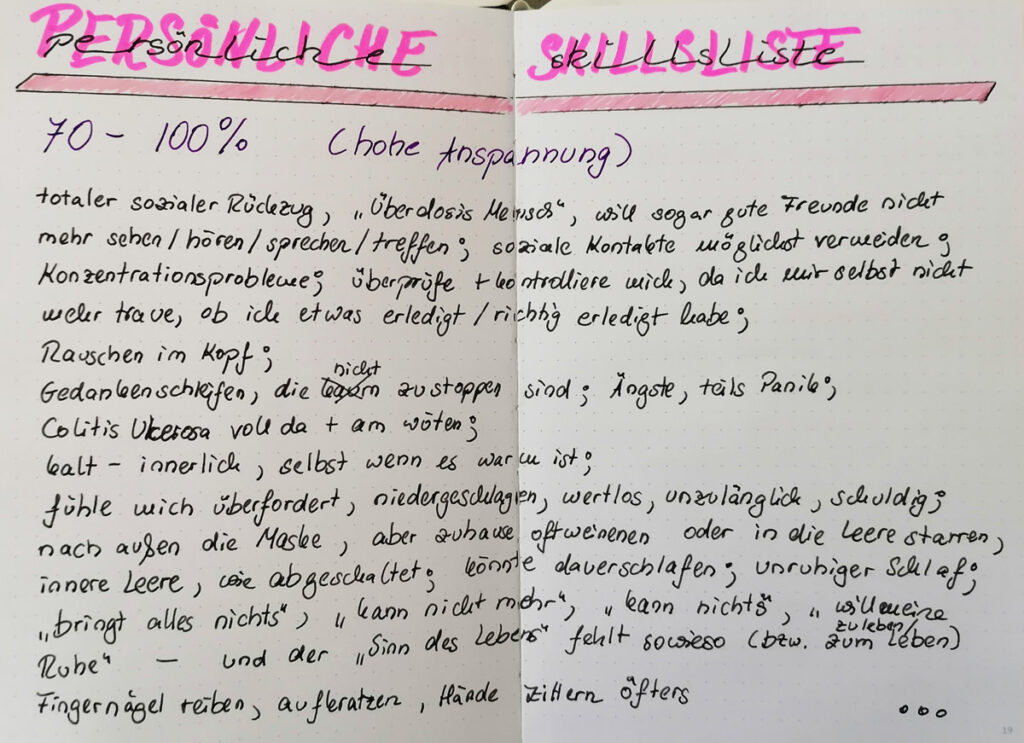 PERSÖNLICHE SKILLSLISTE
persönliche skillsliste
70 - 100% (hohe Anspannung)
totaler sozialer Rückzug, „Überdosis Mensch“, will sogar gute Freunde nicht
mehr sehen/hören/sprechen/treffen; soziale Kontakte möglichst vermeiden;
Konzentrationsprobleme; überprüfe + kontrolliere mich, da ich mir selbst nicht
mehr traue, ob ich etwas erledigt/richtig erledigt habe;
Rauschen im Kopf;
nicht
Gedankenschleifen, die zu stoppen sind; Ängste, teils Panik;
Colitis Ulcerosa voll da + am wüten;
kalt - innerlich, selbst wenn es warm ist;
fühle mich überfordert, niedergeschlagen, wertlos, unzulänglich, schuldig;
nach außen die Maske, aber zuhause oft weinenen oder in die Leere starren,
innere Leere, wie abgeschaltet; könnte dauerschlafen; unruhiger Schlaf;
„bringt alles nichts“, „kann nicht mehr“, „kann nichts“, „will meine
zu leben/
Ruhe“ — und der „Sinn des Lebens“ fehlt sowieso (bzw. zum Leben)
Fingernägel reiben, aufkratzen, Hände zittern öfters ...
19